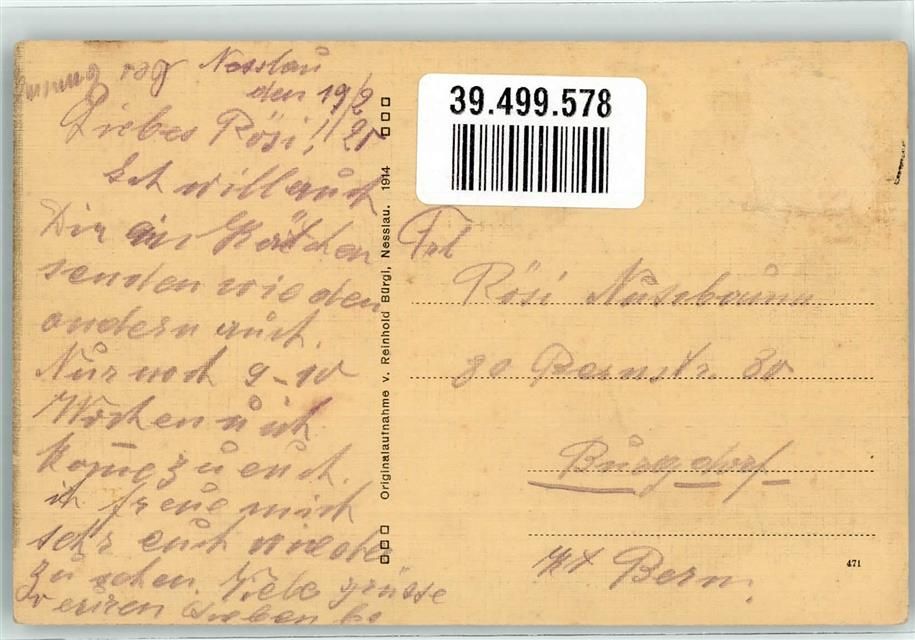 Nesslau
den 19/2 25
Liebes Rösi!!
Ich will auch
Dir ein Kärtchen
senden wie den
andern auch.
Nur noch 9-10
Wochen u ich
kome zu euch.
ich freue mich
sehr euch wieder
zu sehen. Viele grüsse
lieben
Originalaufnahme v. Reinhold Bürgi, Nesslau. 1914
39.499.578
Frl
Rösi Nussbaum
30 Bernstr. 30
Burgdorf
Kt Bern.
471